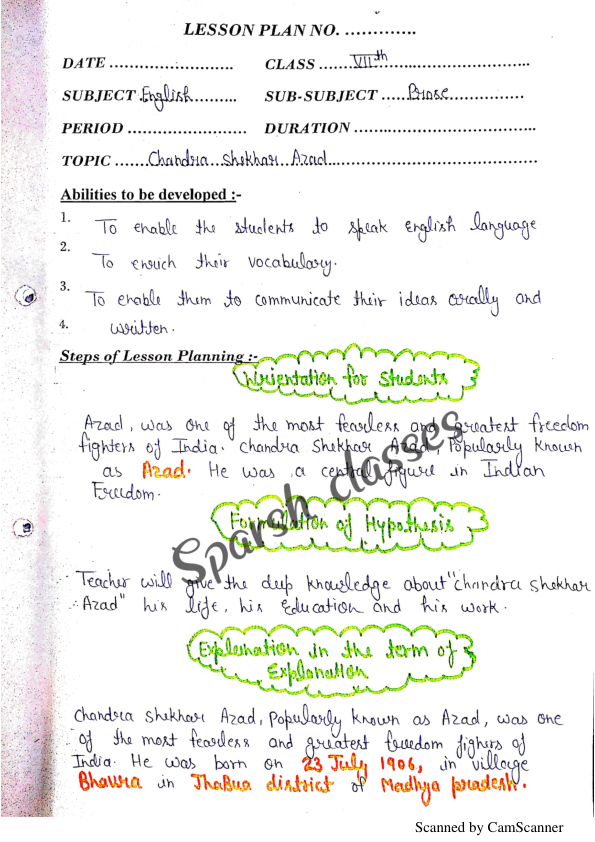 LESSON PLAN NO. .............
DATE ........................ CLASS ......VIIth............................
SUBJECT English.......... SUB-SUBJECT .....Prose...............
PERIOD ....................... DURATION ...................................
TOPIC .......Chandra Shekhar Azad..........................................
Abilities to be developed :-
1. To enable the students to speak english language
2. To enrich their vocabulary.
3. To enable them to communicate their ideas orally and
4. written.
Steps of Lesson Planning :-
Orientation for Students
Azad, was one of the most fearless and greatest freedom
fighters of India. Chandra Shekhar Azad, Popularly Known
as Azad. He was a central figure in Indian
Freedom.
Sparsh classes
Formulation of Hypothesis
Teacher will give the deep knowledge about "Chandra Shekhar
Azad" his life, his Education and his work.
Explaination in the term of
Explanation
Chandra Shekhar Azad, Popularly known as Azad, was one
of the most fearless and greatest freedom fighers of
India. He was born on 23 July 1906, in village
Bhawra in Jhabua district of Madhya pradesh.
Scanned by CamScanner